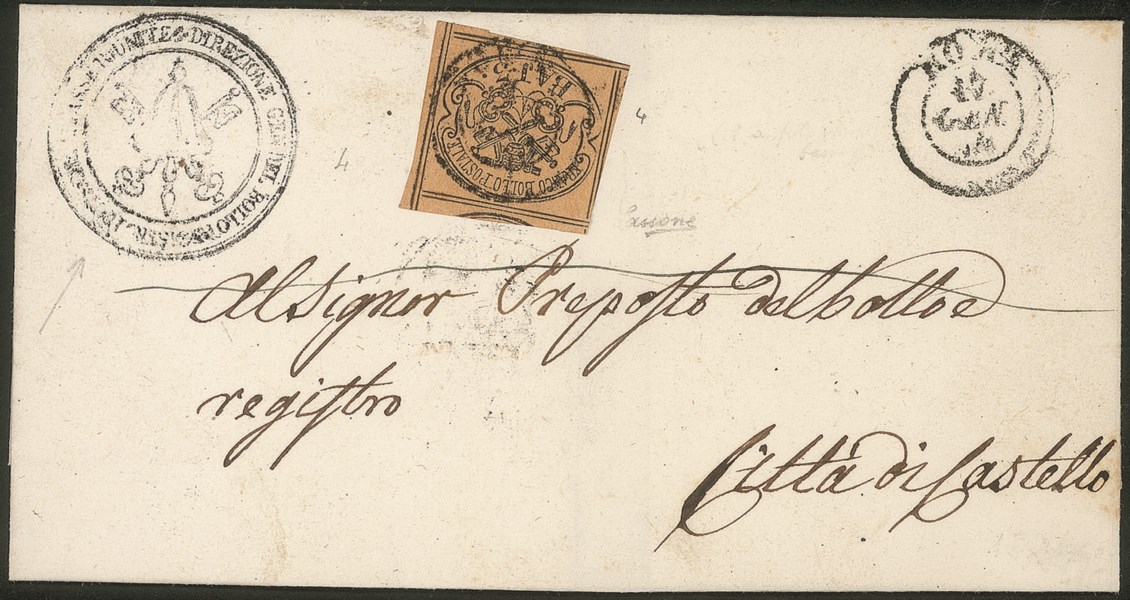 DIREZIONE GEN. DEL BOLLO
BAJ. 5.
FRANCO BOLLO POSTALE
ROMA
GEN
4
4
Cassone
Al Signor Preposto del bollo e
registro
Città di Castello